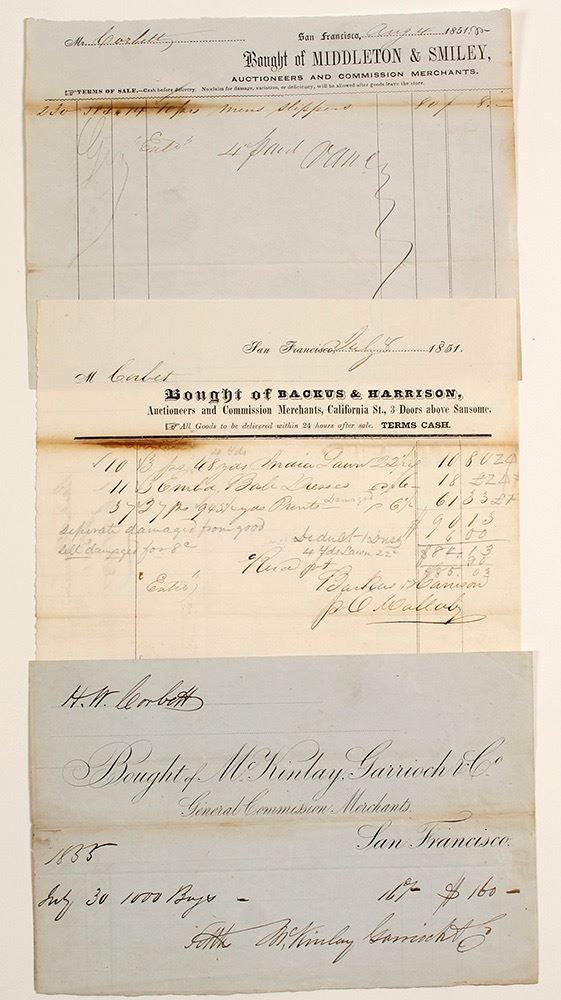 Mr. Corbett, San Francisco, Aug 4 1851
Bought of MIDDLETON & SMILEY,
AUCTIONEERS AND COMMISSION MERCHANTS.
TERMS OF SALE.—Cash before delivery. No claim for damage, variation, or deficiency, will be allowed after goods leave the store.
230 mens slippers 80
"Entd" paid
San Francisco, July 8 1851.
M Corbet
Bought of BACKUS & HARRISON,
Auctioneers and Commission Merchants, California St., 3 Doors above Sansome.
All Goods to be delivered within 24 hours after sale. TERMS CASH.
4 yds
10 3 ps 48 yds India Lawn 22½ 10 80
11 3 Embd Robe Dresses 6– 18
Damaged
37 27 ps 943½ yds Prints 6½ 61 33
$90 13
seperate damaged from good Deduct 1 Dress 6 00
sell damaged for 8c $84.13
4 yds Lawn 22c 90
Recd pt $85.03
"Entd" Backus & Harrison
H. W. Corbett
Bought of McKinlay, Garrioch & Co.
General Commission Merchants.
San Francisco.
1855
July 30 1000 Bags – 16c/– $160 –
McKinlay Garrioch & Co